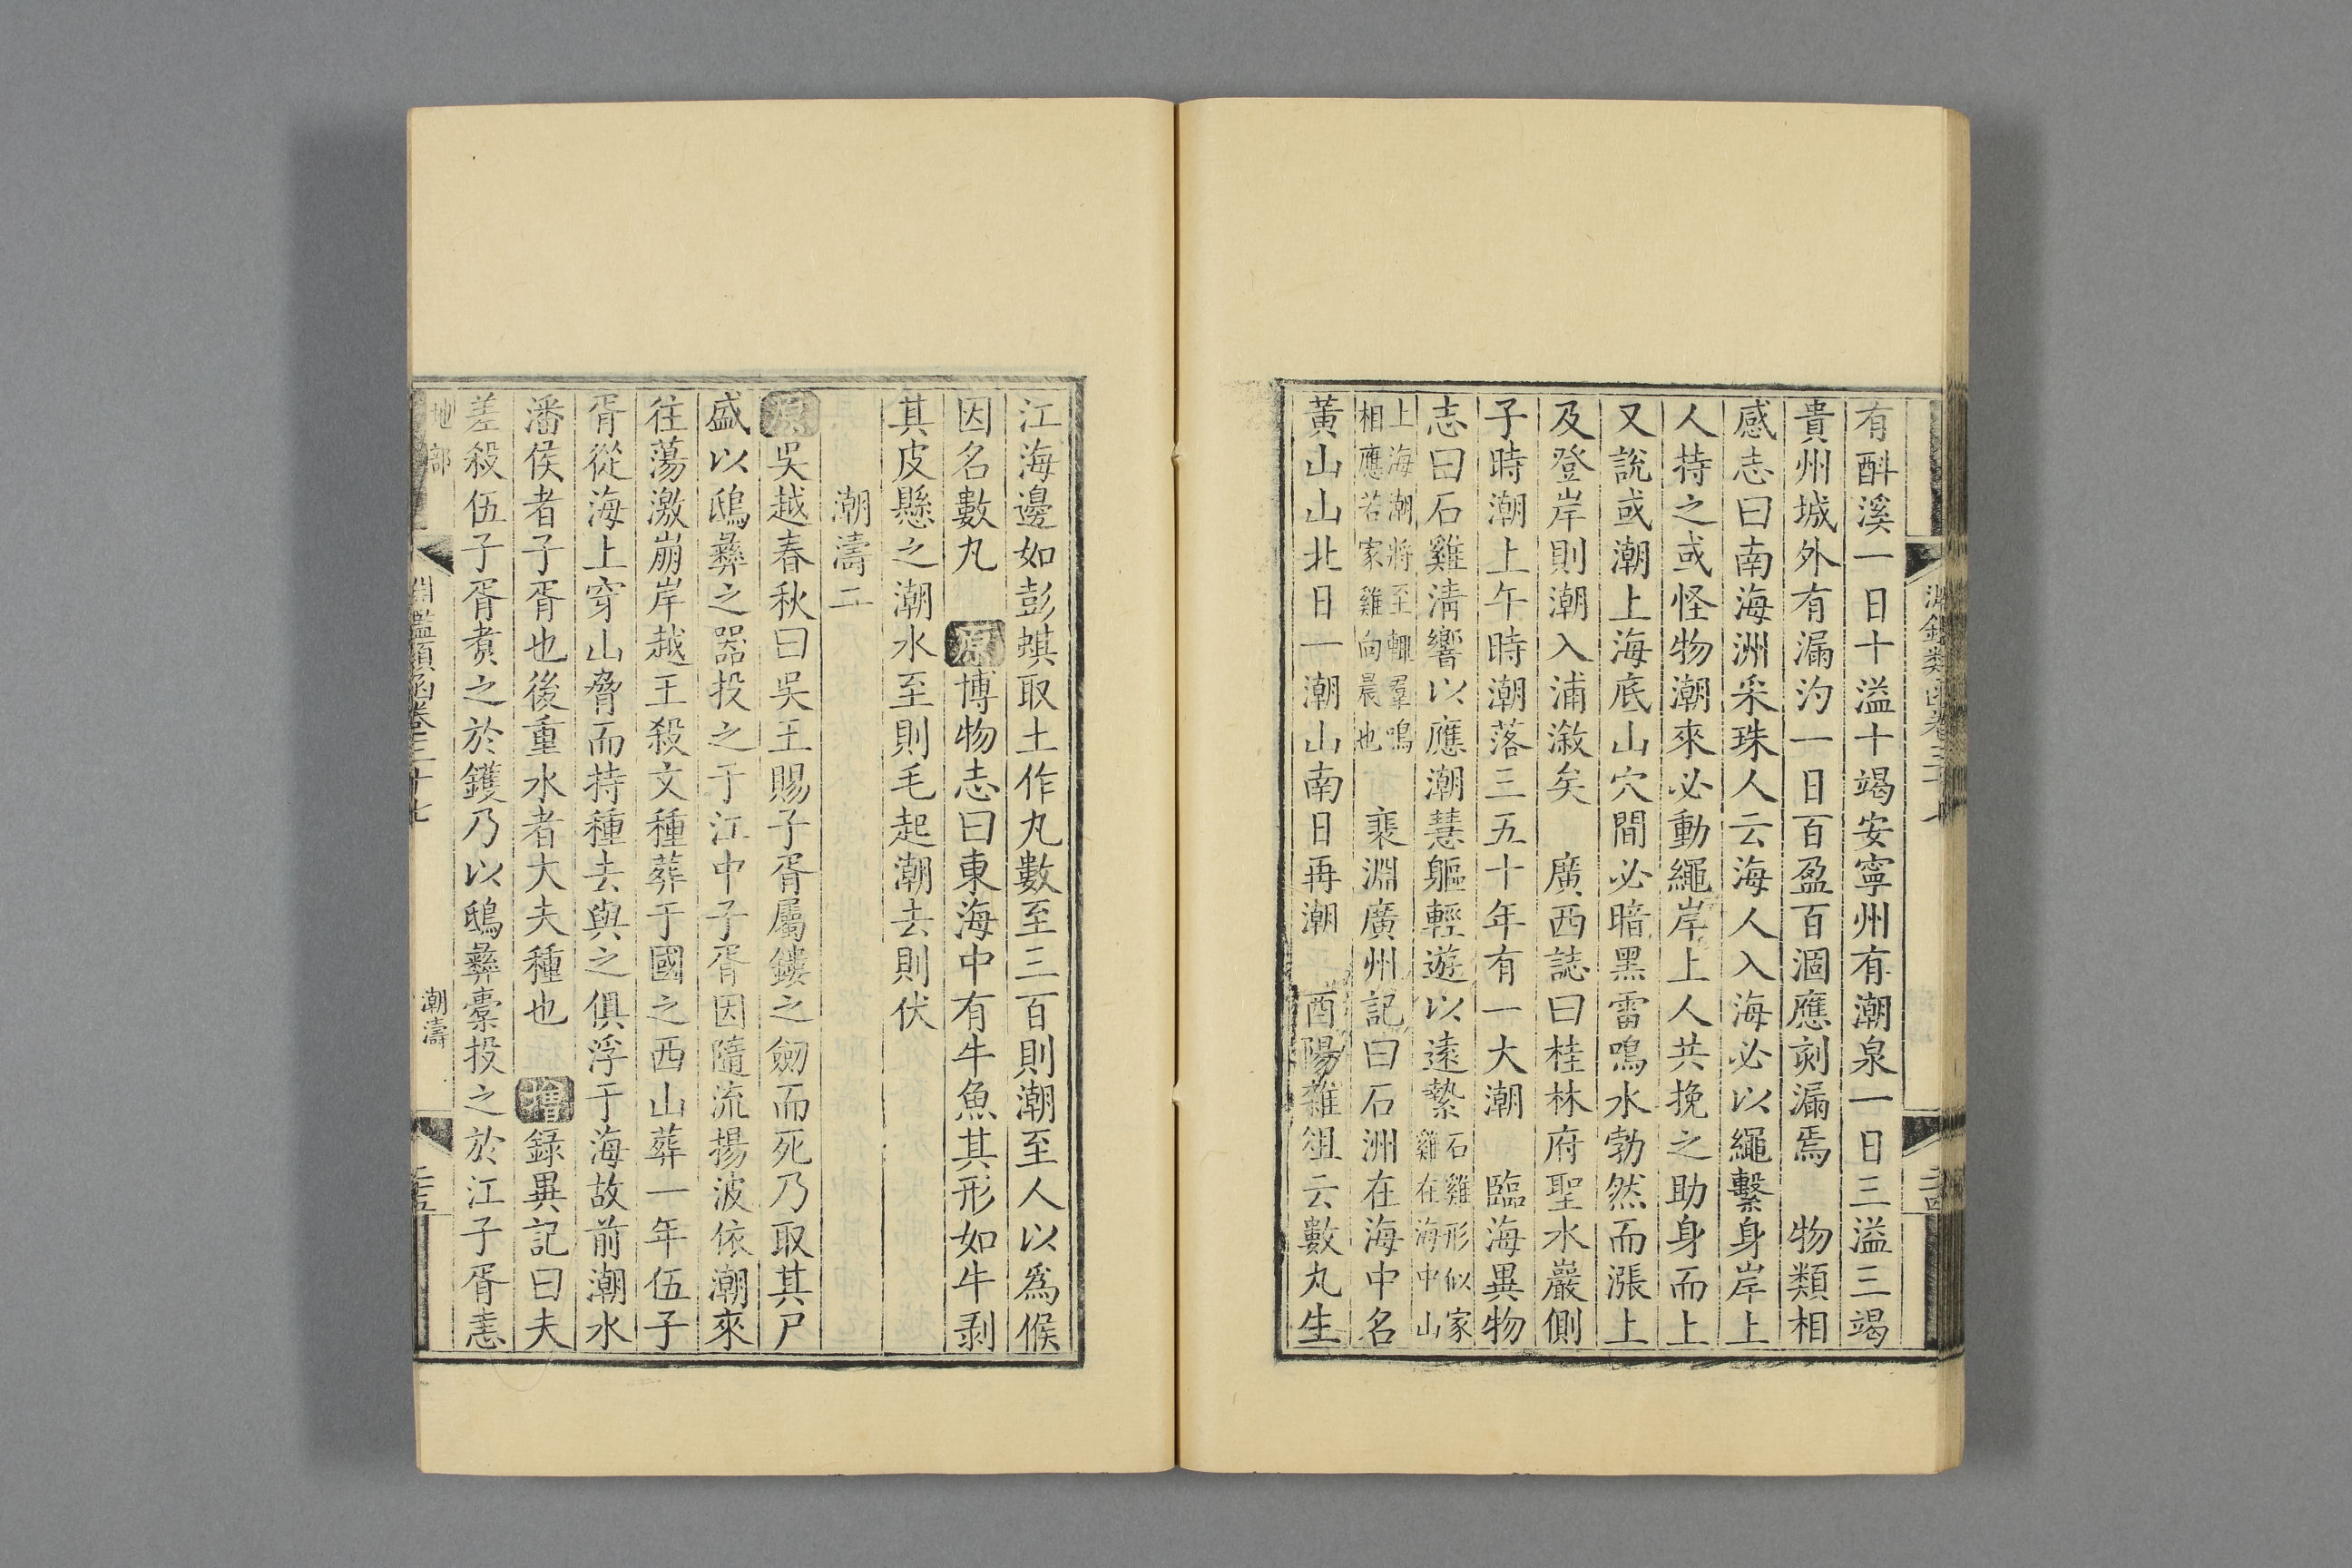 有酙溪一日十溢十竭安寧州有潮泉一日三溢三竭
貴州城外有漏汋一日百盈百涸應刻漏焉　物類相
感志曰南海洲采珠人云海人入海必以繩繫身岸上
人持之或怪物潮來必動繩岸上人共挽之助身而上
又說或潮上海底山穴間必暗黑雷鳴水勃然而漲上
及登岸則潮入浦漵矣　廣西誌曰桂林府聖水巖側
子時潮上午時潮落三五十年有一大潮　臨海異物
志曰石雞清響以應潮慧軀輕遊以遠縶石雞形似家雞在海中山
上海潮將至輒羣鳴相應若家雞向晨也　裴淵廣州記曰石洲在海中名
黃山山北日一潮山南日再潮　酉陽雜俎云數丸生
江海邊如彭蜞取土作丸數至三百則潮至人以爲候
因名數丸　原博物志曰東海中有牛魚其形如牛剥
其皮懸之潮水至則毛起潮去則伏
潮濤二
原吳越春秋曰吳王賜子胥屬鏤之劒而死乃取其尸
盛以鴟彝之器投之于江中子胥因隨流揚波依潮來
往蕩激崩岸越王殺文種葬于國之西山葬一年伍子
胥從海上穿山脅而持種去與之俱浮于海故前潮水
潘侯者子胥也後重水者大夫種也　增錄異記曰夫
差殺伍子胥煑之於鑊乃以鴟彝橐投之於江子胥恚
地部　淵鑑類函卷三十七　潮濤　二十五